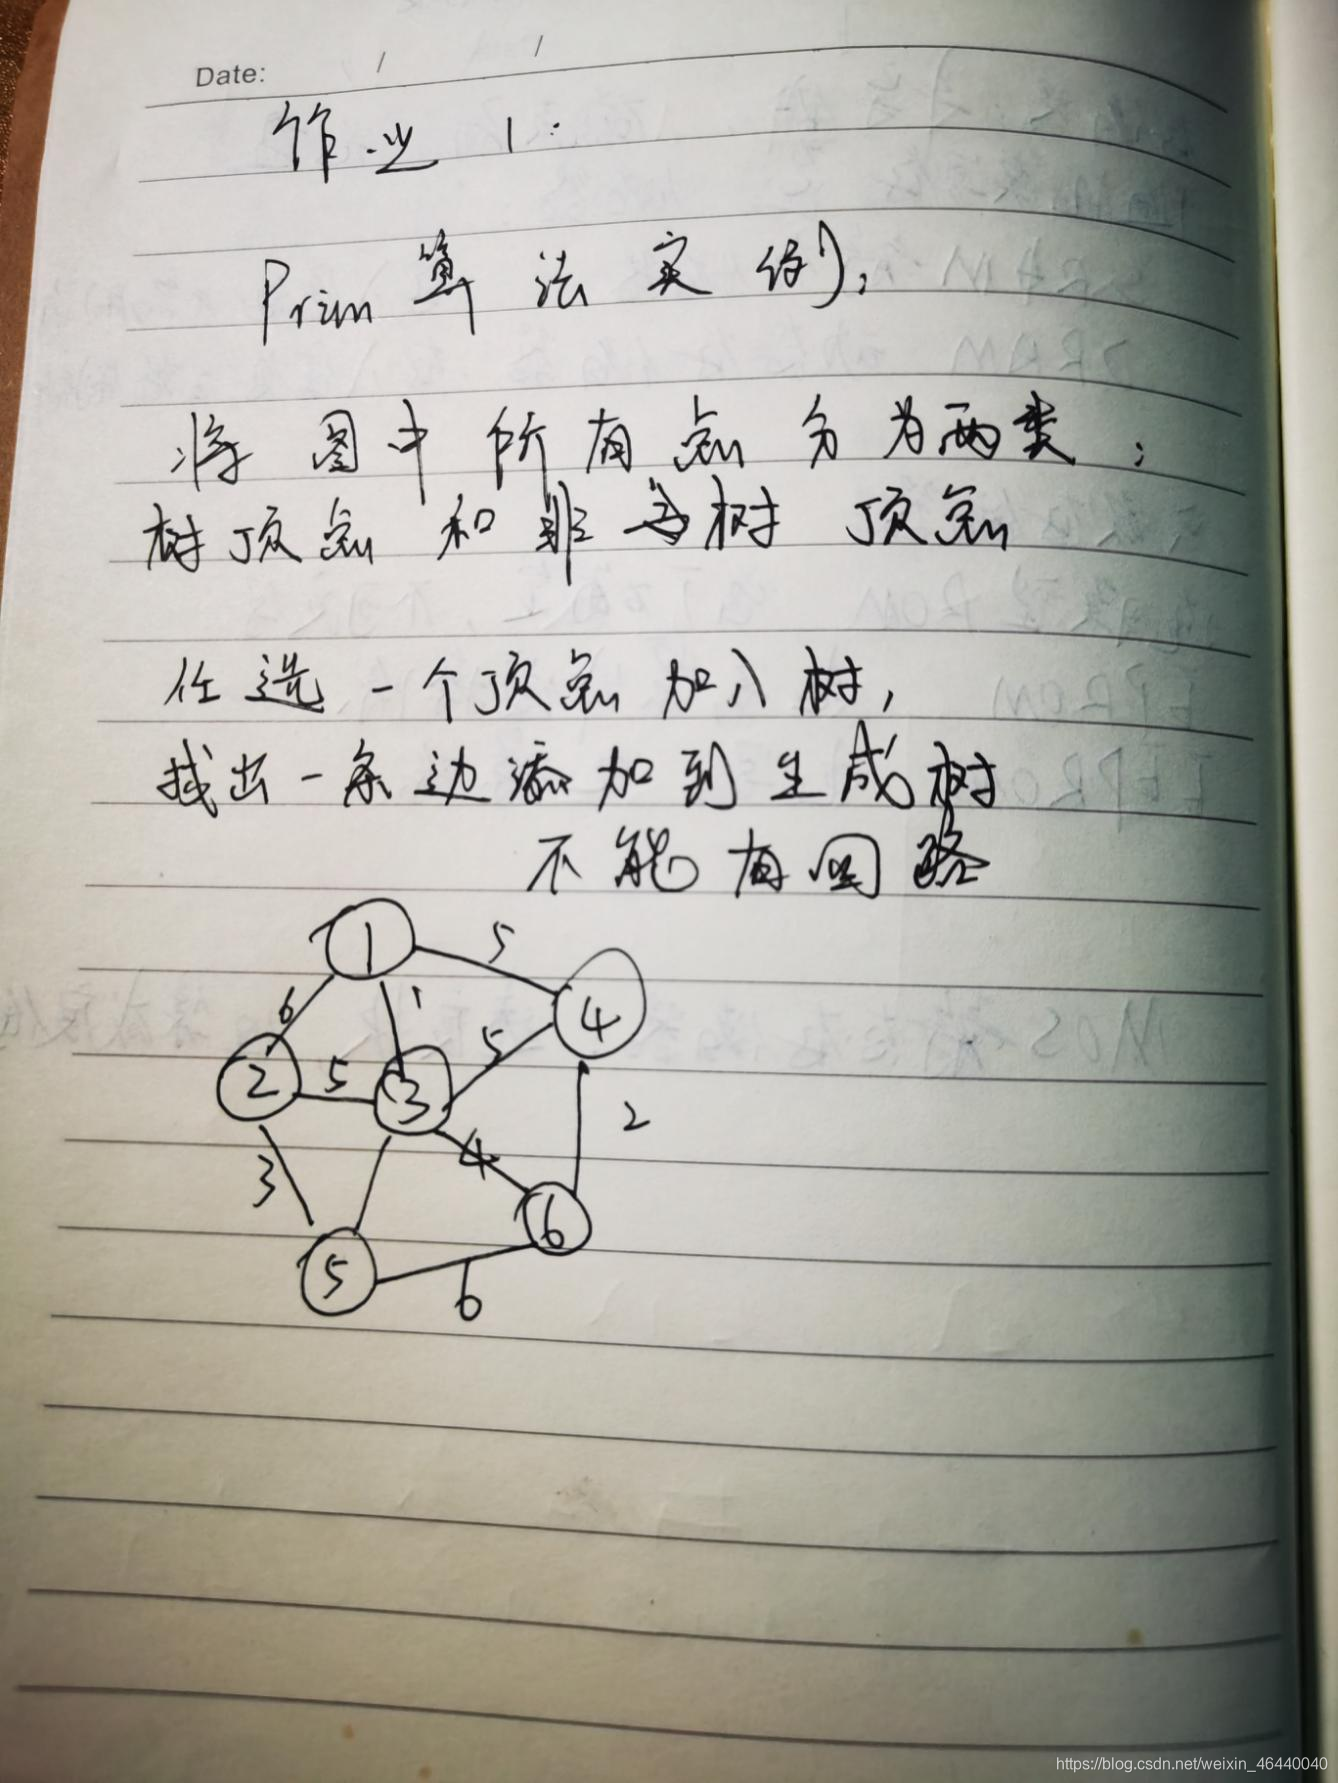 Date: / /
作业 1:
Prim 算法实例;
将图中所有点分为两类;
树顶点和非树顶点
任选一个顶点加入树,
找出一条边添加到生成树
不能有回路
1 5
6 1 4
5
2 5 3
2
4
3
6
5
6
https://blog.csdn.net/weixin_46440040